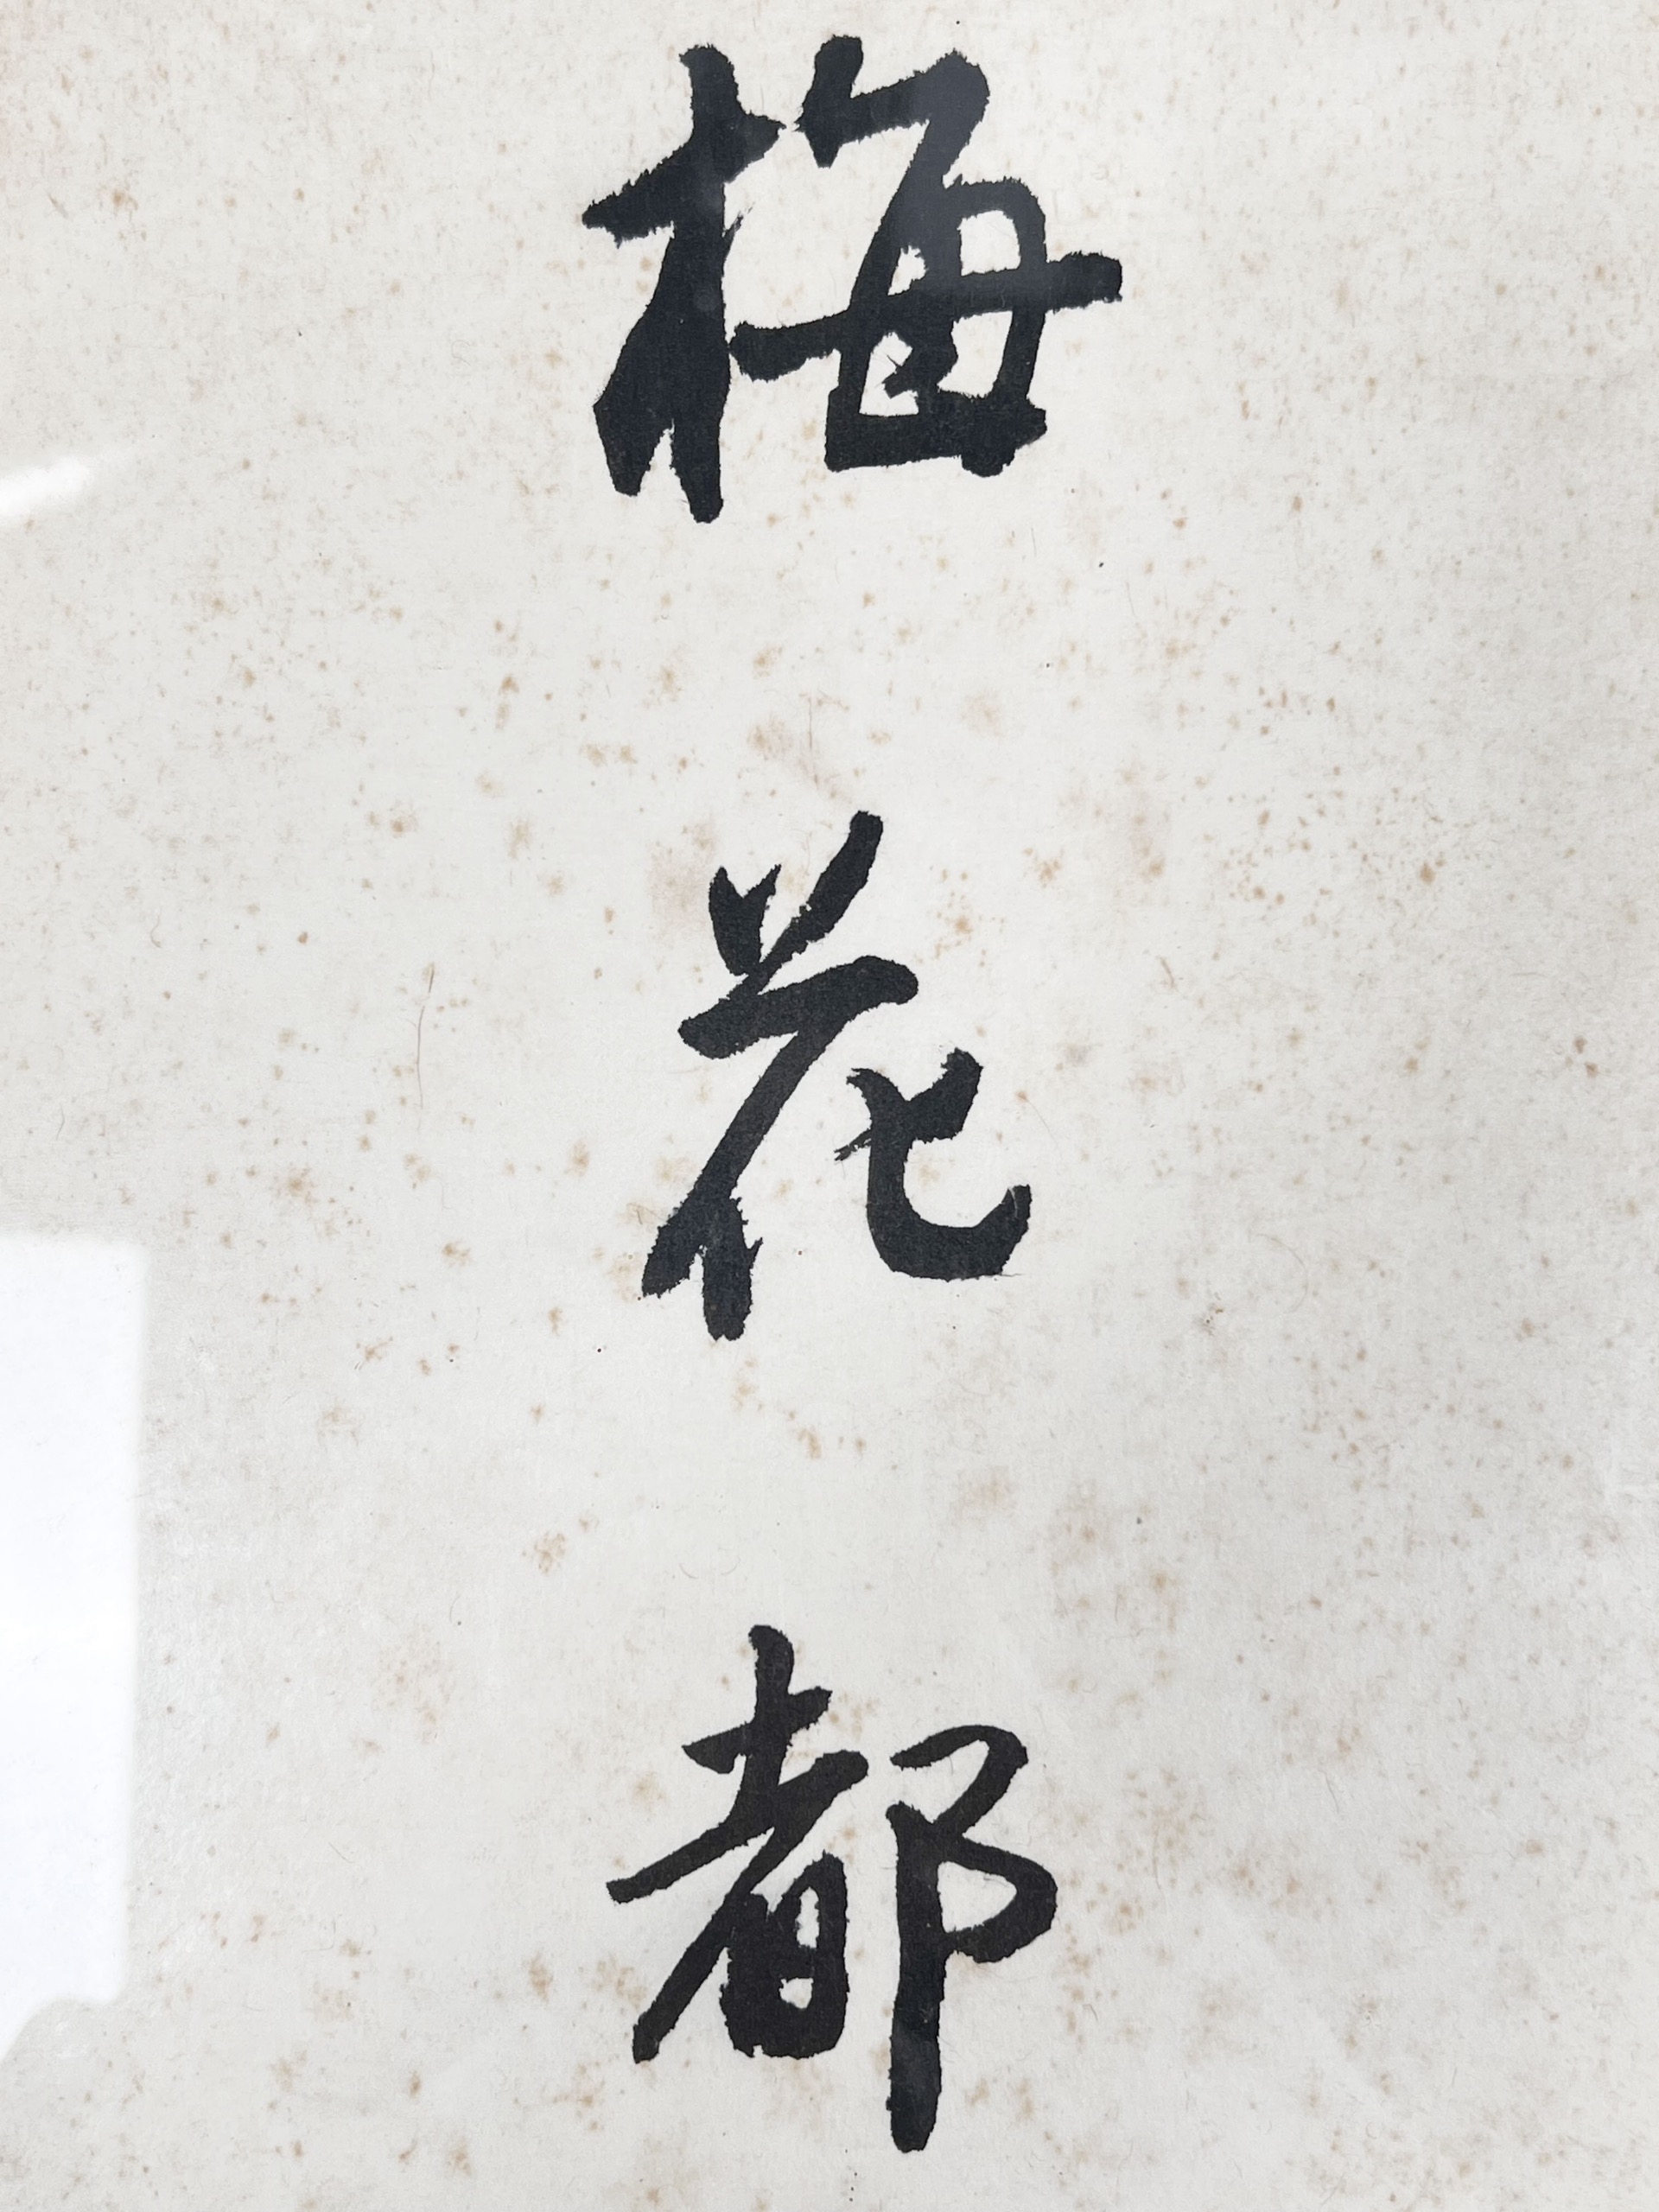 梅花都